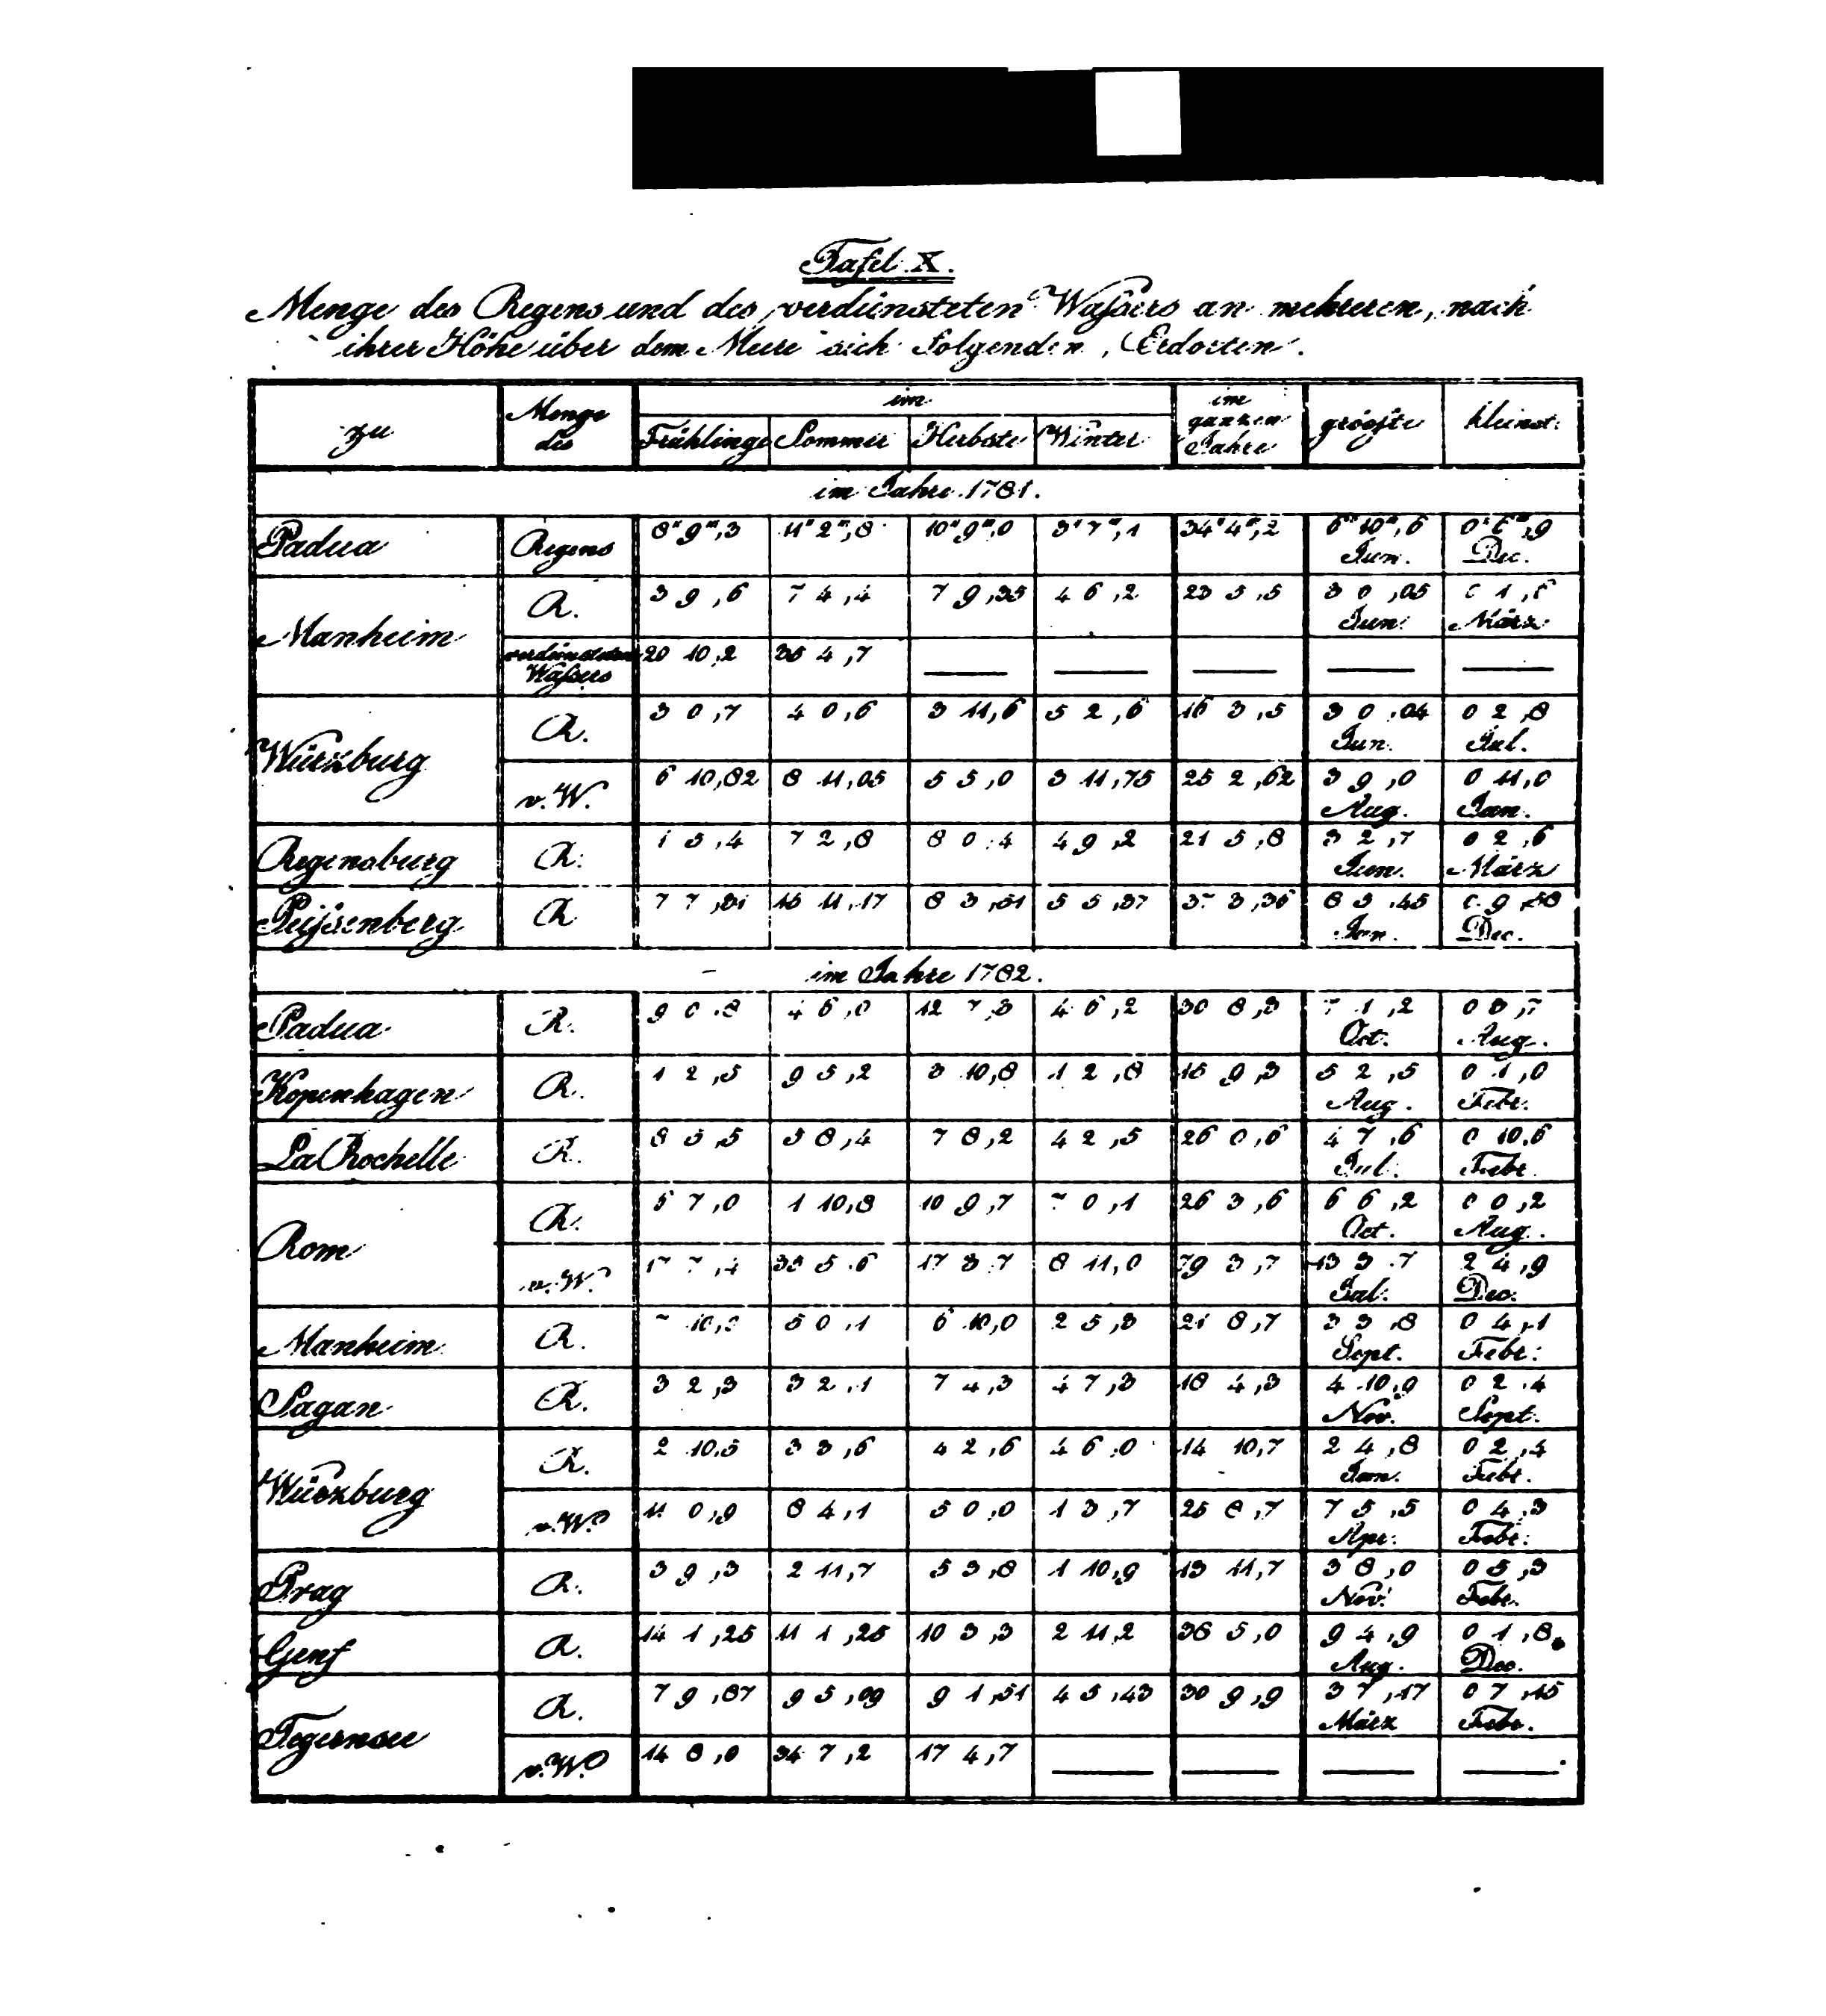 Tafel X.
Menge des Regens und des verdünsteten Waßers an mehreren, nach
ihrer Höhe über dem Meere sich folgenden, Erdorten.
zu Menge des im im ganzen Jahre größte kleinst.
Frühlinge Sommer Herbste Winter
im Jahre 1781.
Padua Regens 8" 9"',3 11" 2"',8 10" 9"',0 3" 7"',1 34" 4"',2 6" 10"',6 Jun. Dec.
Manheim R. 3 9,6 7 4,4 7 9,35 4 6,2 23 5,5 3 0,05 Jun. März
verdünsteten Waßers 20 10,2 35 4,7
Würzburg R. 3 0,7 4 0,6 3 11,6 5 2,6 16 3,5 3 0,04 Jun. 0 2,8 Jul.
v. W. 6 10,82 8 11,05 5 5,0 3 11,75 25 2,62 3 9,0 Aug. 0 11,0 Jan.
Regensburg R. 1 5,4 7 2,8 8 0,4 4 9,2 21 5,8 3 2,7 Jun. 0 2,6 März
Peißenberg R 7 7,31 15 11,17 8 3,51 5 5,37 8 3,45 Dec.
im Jahre 1782.
Padua R. 9 0,8 4 6,0 4 6,2 30 8,3 Oct. Aug.
Kopenhagen R. 1 2,5 9 5,2 3 10,8 1 2,8 15 9,3 5 2,5 Aug. 0 1,0 Febr.
La Rochelle R. 8 5,5 5 8,4 7 8,2 4 2,5 26 0,6 4 7,6 Jul. 0 10,6 Febr.
Rom R. 5 7,0 1 10,8 10 9,7 26 3,6 6 6,2 Oct. 0 0,2 Aug.
v. W. 17 7,4 35 5,6 17 3,7 8 11,0 79 3,7 13 3,7 Jul. 2 4,9 Dec.
Manheim R. 5 0,1 6 10,0 2 5,3 21 8,7 3 3,8 Sept. 0 4,1 Febr.
Sagan R. 3 2,3 3 2,1 7 4,3 4 7,3 18 4,3 4 10,9 Nov. 0 2,4 Sept.
Würzburg R. 2 10,5 3 3,6 4 2,6 4 6,0 14 10,7 2 4,8 Jan. 0 2,4 Febr.
v. W. 11 0,9 8 4,1 5 0,0 1 3,7 25 8,7 7 5,5 Apr. 0 4,3 Febr.
Prag R. 3 9,3 2 11,7 5 3,8 1 10,9 13 11,7 3 8,0 Nov. 0 5,3 Febr.
Genf R. 14 1,25 11 1,25 10 3,3 2 11,2 38 5,0 9 4,9 Aug. 0 1,8 Dec.
Tegernsee R. 7 9,87 9 5,09 9 1,51 4 5,43 30 9,9 3 7,17 März 0 7,15 Febr.
v. W. 14 8,0 34 7,2 17 4,7